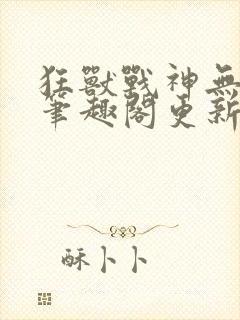 狂獸戰神無
筆趣閣更新
酥卜卜